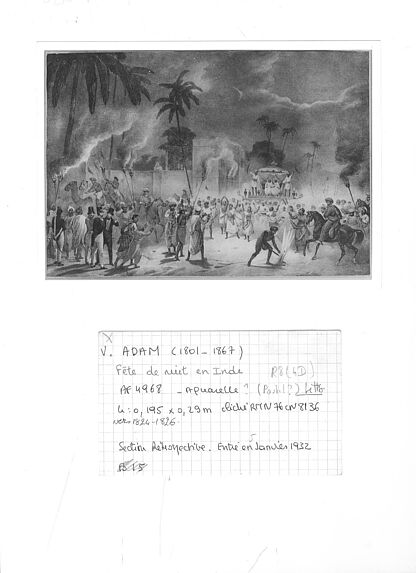 V. ADAM (1801-1867)
Fête de nuit en Inde R8(4D)
AF 4968 - Aquarelle ? (Pastel ?) Litho
h: 0,195 x 0,29 m cliché RMN 76 CN 8136
vers 1824-1826.
Section Rétrospective. Entré en Janvier 1932